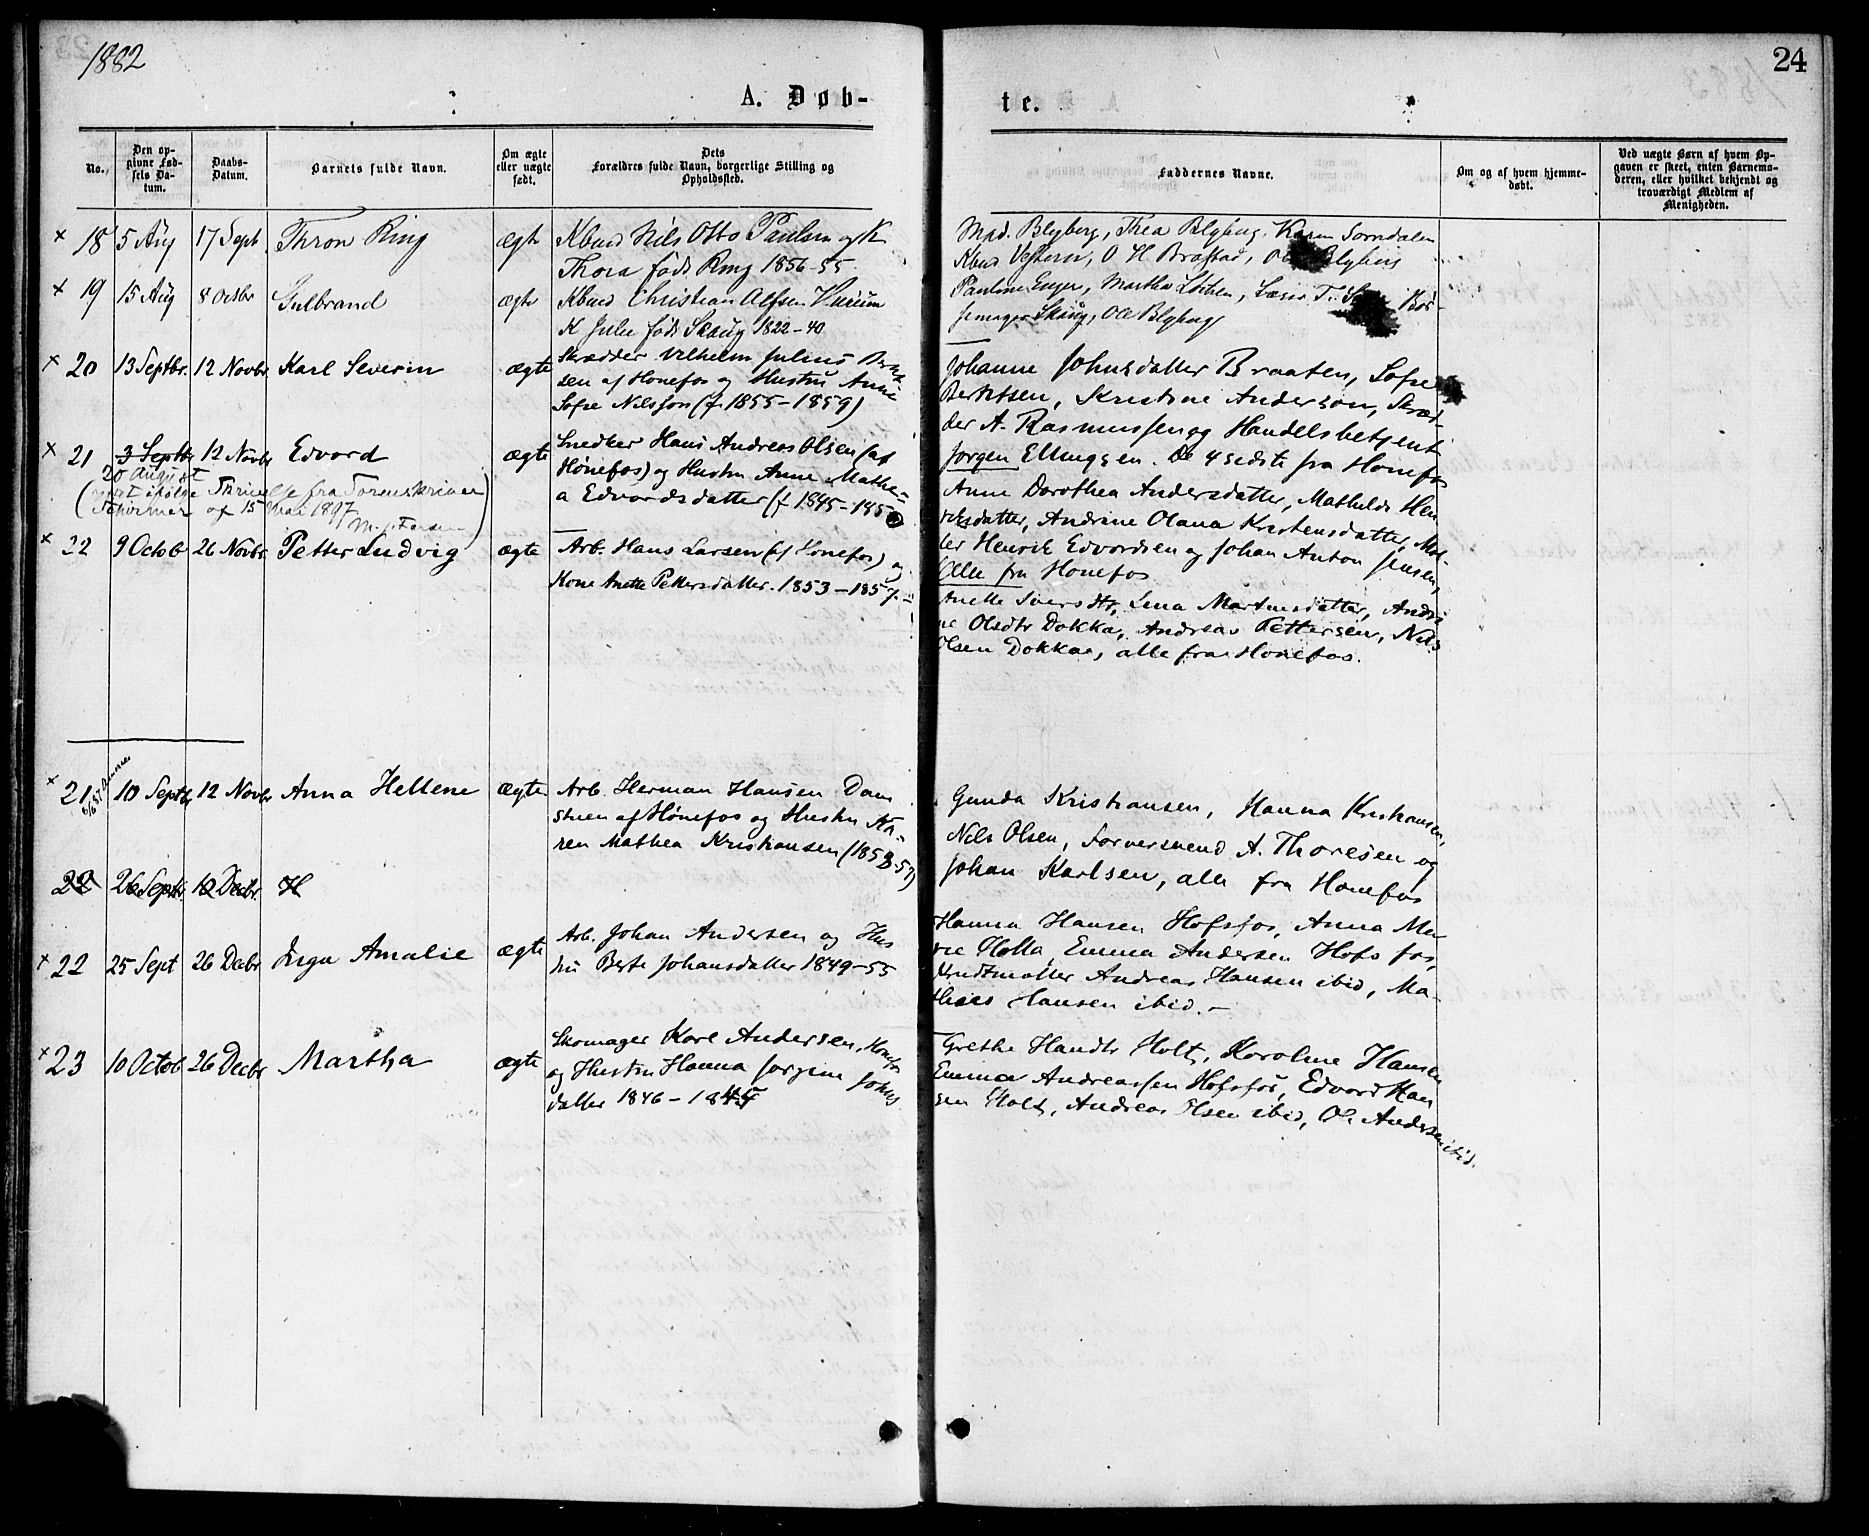 1882
24
A. Døb-
te.
No.
Den op-
givne Fød-
sels Da-
tum.
Daabs-
Datum.
Barnets fulde Navn.
Om ægte
eller uægte
født.
Dets
Forældres fulde Navn, borgerlige Stilling og
Opholdssted.
Faddernes Navne.
Om og af hvem hjemme-
døbt.
Ved uægte Børn af hvem Op-
gaven er skeet, enten Barnemo-
deren, eller hvilket bekjendt og
troværdigt Medlem af
Menigheden.
× 18 5 Aug 17 Sept. Thron Ring ægte Kbmd Nils Otto Paulsen og K
Thora født Ring 1856-55
Mad. Blyberg, Thea Blyberg, Karen
Kbmd O H Braastad, Blyberg
× 19 15 Aug 8 Octbr Gulbrand ægte Kbmd Christian Alfsen
K Julie født Skaug 1822-40
Pauline Enger, Martha
Skaug, Ole Blyberg
× 20 13 Septbr. 12 Novbr Karl Severin ægte Skrædder Vilhelm Julius
sen af Hønefos og Hustru Anne
Sofie Nilsson (f. 1855-1859)
Johanne Johnsdatter Braaten, Sofie
Berntsen, Kristine Anderson, Skræd-
der A. Rasmussen og Handelsbetjent
Jørgen Ellingsen. De 4 sidste fra Hønefos
× 21 3 Septbr 12 Novbr Edvard ægte Snedker Hans Andreas Olsen (af
Hønefos) og Hustru Anne Mathe-
a Edvardsdatter (f. 1845-185
20 August
ifølge Skrivelse fra Sorenskriver
af 15 Mai 1897
Anne Dorothea Andersdatter, Mathilde Hen
riksdatter, Andrine Olava Kristensdatter, Møl-
ler Henrik Edvardsen og Johan Anton Jensen,
Alle fra Hønefos
× 22 9 Octob 26 Novbr. Petter Ludvig ægte Arb. Hans Larsen (af Hønefos) og
Kone Anette Pettersdatter. 1853-1857
Anette Iversdtr, Lena Martinsdatter, Andri
ne Olsdtr Dokka, Andreas Pettersen, Nils
Olsen Dokka, alle fra Hønefos.
× 21 10 Septbr 12 Novbr Anna Hellene ægte Arb. Herman Hansen Dam
stuen af Hønefos og Hustru Ka-
ren Mathea Kristiansen (1853-57)
Gunda Kristiansen, Hanna Kristiansen,
Nils Olsen, Farversvend A. Thoresen og
Johan Karlsen, alle fra Hønefos
22 26 Septbr. 10 Decbr. H
× 22 25 Sept 26 Decbr Inga Amalie ægte Arb. Johan Andersen og Hus
tru Berte Johansdatter 1849-55
Hanna Hansen Hofsfos, Anna Ma
rie Holla, Emma Andersen Hofsfos,
Andreas Hansen ibid, Ma-
thias Hansen ibid.-
× 23 10 Octob 26 Decbr Martha ægte Skomager Karl Andersen, Hønefos
og Hustru Hanna Jørgine Johns
datter 1846-1845
Grethe Hansdtr Holt, Karoline Hansen
Emma Andreassen Hofsfos, Edvard Han
sen Holt, Andreas Olsen ibid, Ole Andersen ibid.